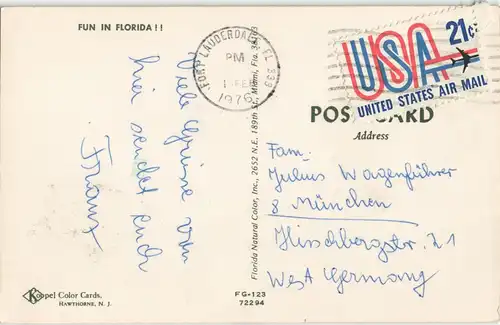 FUN IN FLORIDA!!
Viele Grüsse von
hier sendet euch
Franz
Koppel Color Cards.
HAWTHORNE, N. J.
Florida Natural Color, Inc., 2652 N.E. 189th St., Miami, Fla. 33163
FG-123
72294
FORT LAUDERDALE, FL 333
PM
1 FEB
1976
USA 21c
UNITED STATES AIR MAIL
POST CARD
Address
Fam.
Julius Wagenführer
8 München
Hirschbergstr. 21
West Germany